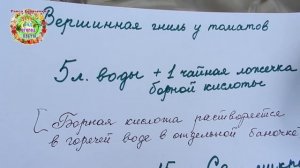 Вершинная гниль у томатов
5 л. воды + 1 чайная ложечка
борной кислоты
[Борная кислота растворяется
в горячей воде в отдельной баночке